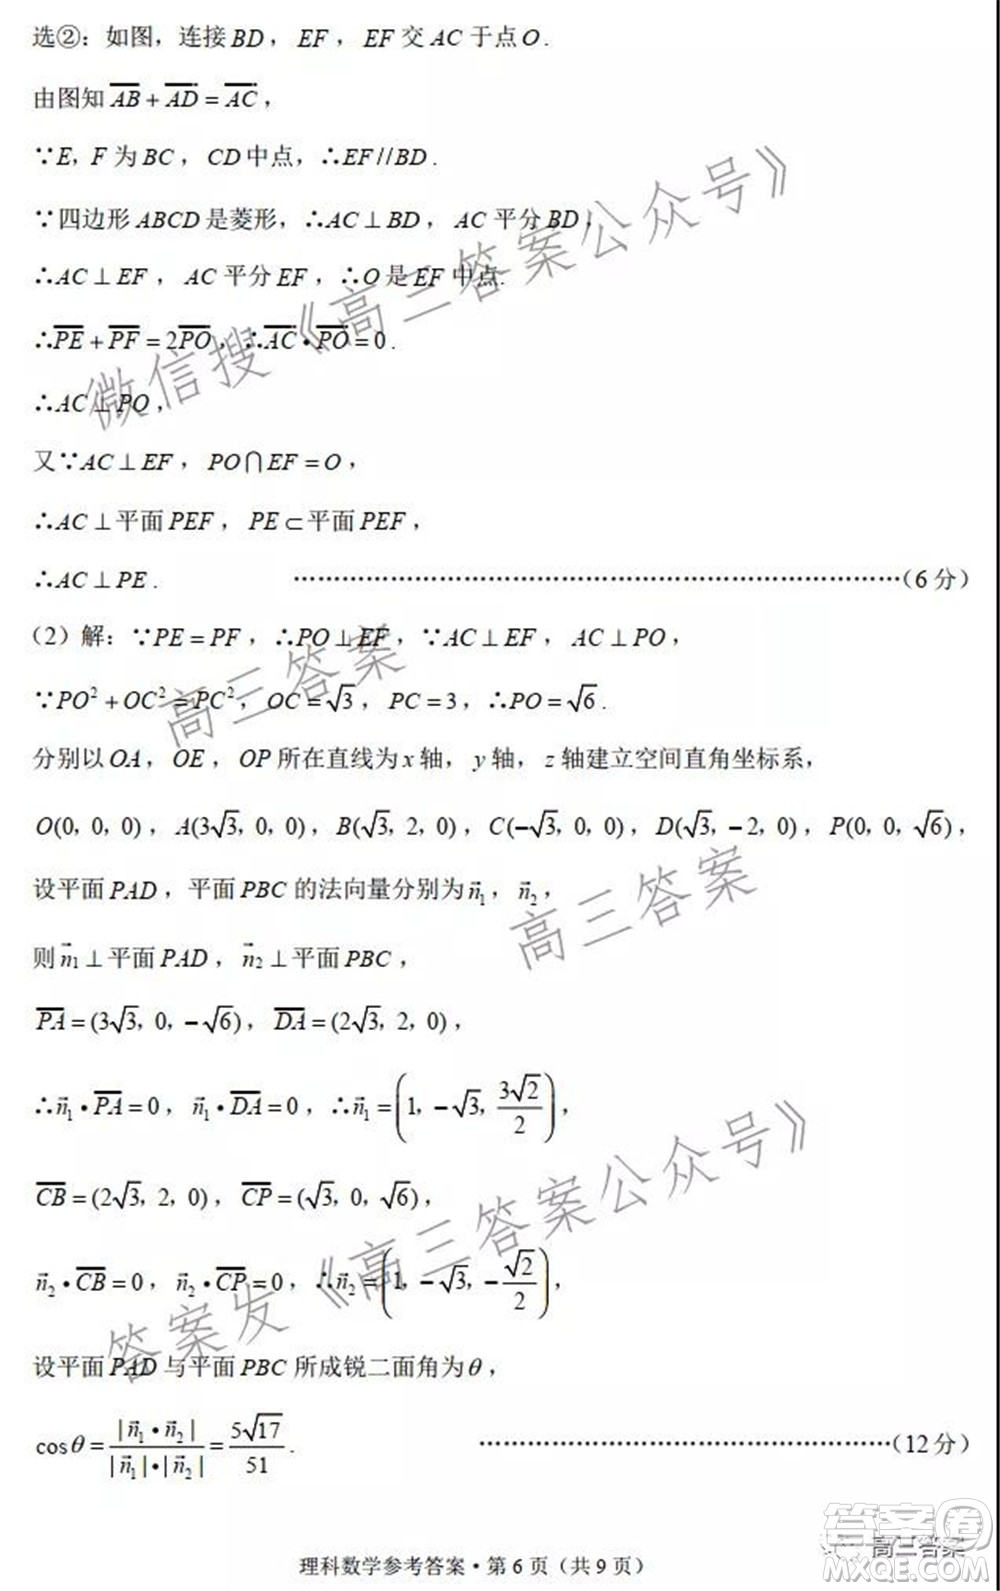 选②：如图，连接BD，EF，EF交AC于点O．
由图知AB+AD=AC，
∵E，F为BC，CD中点，∴EF//BD．
∵四边形ABCD是菱形，∴AC⊥BD，AC平分BD，
∴AC⊥EF，AC平分EF，∴O是EF中点．
∴PE+PF=2PO，∴AC•PO=0．
∴AC⊥PO，
又∵AC⊥EF，PO∩EF=O，
∴AC⊥平面PEF，PE⊂平面PEF，
∴AC⊥PE．……………………………………………………………………（6分）
（2）解：∵PE=PF，∴PO⊥EF，∵AC⊥EF，AC⊥PO，
∵PO²+OC²=PC²，OC=√3，PC=3，∴PO=√6．
分别以OA，OE，OP所在直线为x轴，y轴，z轴建立空间直角坐标系，
O(0，0，0)，A(3√3，0，0)，B(√3，2，0)，C(-√3，0，0)，D(√3，-2，0)，P(0，0，√6)，
设平面PAD，平面PBC的法向量分别为n⃗₁，n⃗₂，
则n⃗₁⊥平面PAD，n⃗₂⊥平面PBC，
PA=(3√3，0，-√6)，DA=(2√3，2，0)，
∴n⃗₁•PA=0，n⃗₁•DA=0，∴n⃗₁=(1，-√3，3√2/2)，
CB=(2√3，2，0)，CP=(√3，0，√6)，
n⃗₂•CB=0，n⃗₂•CP=0，∴n⃗₂=(1，-√3，-√2/2)，
设平面PAD与平面PBC所成锐二面角为θ，
cosθ=|n⃗₁•n⃗₂|/|n⃗₁|•|n⃗₂|=5√17/51．……………………………………………（12分）
理科数学参考答案•第6页（共9页）
微信搜《高三答案公众号》
高三答案
高三答案
答案发《高三答案公众号》
高三答案
答案圈
MXQE.COM